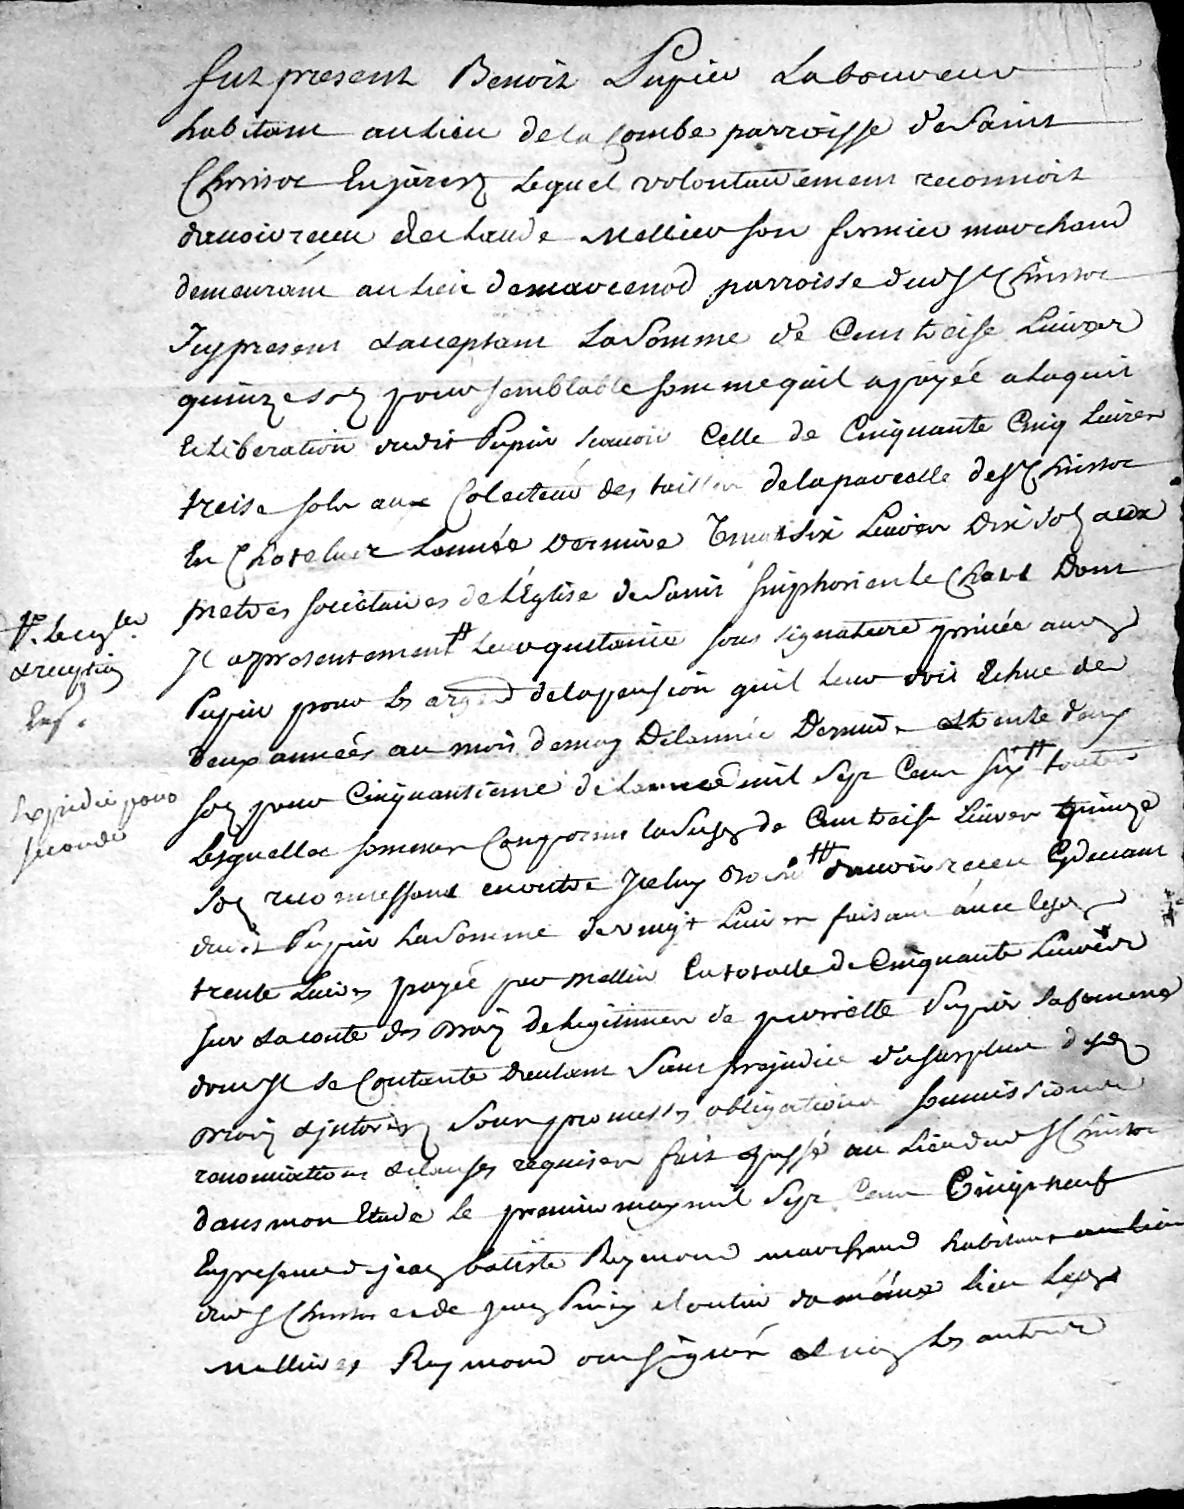 fut present Benoit Pupier Laboureur
habitant au lieu de la Combe parroisse de Saint
Christot En jarest Lequel volontairement reconnoit
davoir receu de Claude Mellier son fermier marchand
demeurant au lieu de marcenod parroisse dud St Christot
Icy present & acceptant La Somme de Cent treise Livres
quinze sols pour semblable somme quil a payée a Laquit
et Liberation dudit Pupier scavoir Celle de Cinquante Cinq Livres
treise sols aux Colecteurs des tailles de la parcelle de St Christot
En Chatelus Lannée derniere trente Six Livres Dix sols aux
pretres societaires de LEglise de Saint Simphorien le Chatel Dont
Il a presentement leur quittance sous signature privée aud
Pupier pour les de la pension quil leur doit Echue de
deux années au mois de may De Lannée Derniere & trente deux
sols pour Cinquantieme de Lannée mil Sept Cent six toutes
Lesquelles sommes Composent la Susd de Cent treise Livres quinze
sols reconnessant en outre Iceluy davoir receu Cydevant
dudit Pupier La Somme de vingt Livres faisant avec les
trente Livres payée par Mellier La totalle de Cinquante Livres
sur & a conte des droits de Legitimes de pierrette Pupier sa femme
dont Il se Contante dautant Sans prejudice du surplus desd
droits & interests Sous promesses obligations soumissions
renonciations & clauses requises fait & passé au Lieu dud St Christot
dans mon Etude le premier may mil Sept Cent Vingt neuf
En presence de jean batiste Reymond marchand habitant au lieu
dud St Christot et de jean du même lieu Lesd
Mellier & Reymond ont signé & non les autres
& reception
Expedié pour
seconde